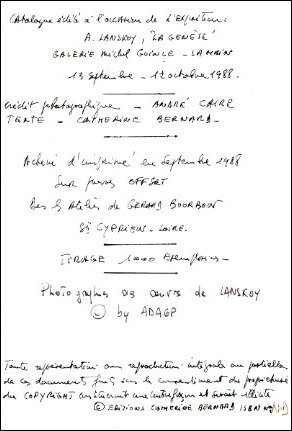 Catalogue édité à l'occasion de l'Exposition:
A. LANSKOY, "LA GENÈSE"
GALERIE Michel GUINLE - LA MAIN
13 septembre - 12 octobre 1988.
Crédit photographique - ANDRÉ CAIRE
TEXTE - CATHERINE BERNARD.
Achevé d'imprimé en septembre 1988
sur presses OFFSET
Des Ateliers de GERARD BOURBON
St CYPRIEN - LOIRE.
TIRAGE 1000 Exemplaires -
Photographies des œuvres de LANSKOY
© by ADAGP
Toute représentation ou reproduction intégrale ou partielle
de ces documents faite sans le consentement du propriétaire
du COPYRIGHT constituerait une contrefaçon et serait illicite
© EDITIONS CATHERINE BERNARD ISBN N°